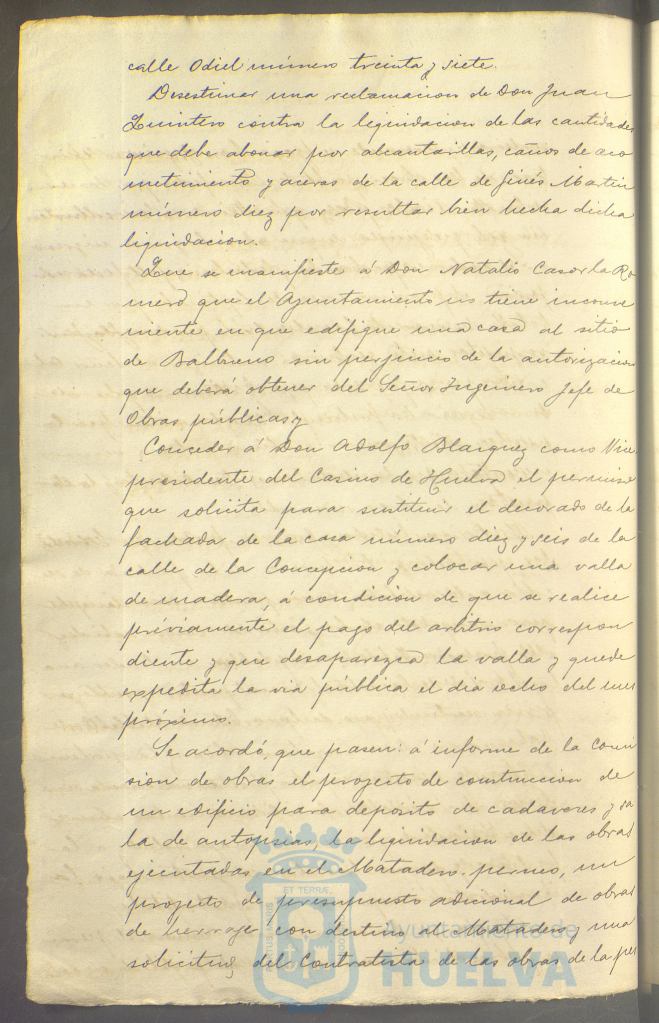 calle Odiel número treinta y siete.
Desestimar una reclamacion de Don Juan
Quintero contra la liquidacion de las cantidades
que debe abonar por alcantarillas, caños de aco
metimiento y aceras de la calle de Ginés Martin
número diez por resultar bien hecha dicha
liquidacion.
Que se manifieste á Don Natalio Casorla Ro
mero que el Ayuntamiento no tiene inconve
niente en que edifique una casa al sitio
de Balbueno sin perjuicio de la autorizacion
que deberá obtener del Señor Ingeniero Jefe de
Obras públicas y
Conceder á Don Adolfo Blazquez como Vice
presidente del Casino de Huelva el permiso
que solicita para sustituir el decorado de la
fachada de la casa número diez y seis de la
calle de la Concepcion y colocar una valla
de madera, á condicion de que se realice
préviamente el pago del arbitrio correspon
diente y que desaparezca la valla y quede
expedita la via pública el dia ocho del mes
próximo.
Se acordó que pasen: á informe de la Comi
sion de obras el proyecto de construccion de
un edificio para depósito de cadáveres y sa
la de autopsias, la liquidacion de las obras
ejecutadas en el Matadero perneo, un
proyecto de presupuesto adicional de obras
de herraje con destino al Matadero y una
solicitud del Contratista de las obras de la pes
Ayuntamiento de
HUELVA